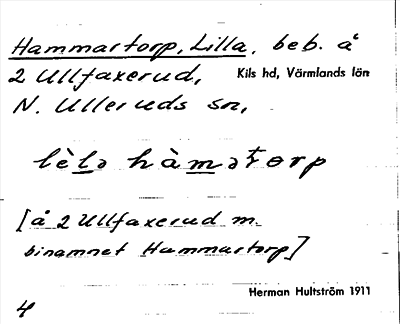 Hammartorp, Lilla, beb. å
2 Ullfaxerud, Kils hd, Värmlands län
N. Ulleruds sn,
lèlə hàmətorp
[å 2 Ullfaxerud m.
binamnet Hammartorp]
Herman Hultström 1911
4